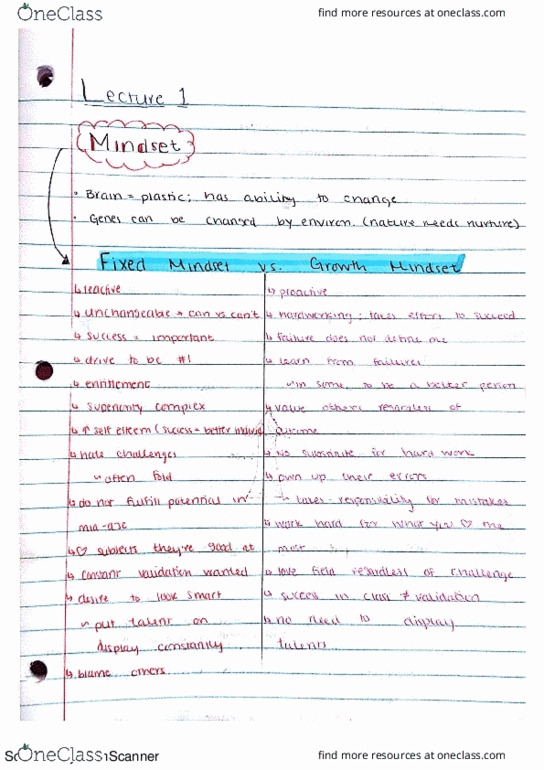 OneClass find more resources at oneclass.com
Lecture 1
Mindset
• Brain = plastic; has ability to change
• Genes can be changed by environ. (nature needs nurture)
Fixed Mindset vs. Growth Mindset
↳ reactive
↳ unchangeable → can vs can't
↳ success = important
↳ drive to be #1
↳ entitlement
↳ superiority complex
↳ ↑ self esteem (success = better
↳ hate challenges
↳ often fold
↳ do not fulfill potential in
mid-age
↳ ♡ subjects they're good at
↳ constant validation wanted
↳ desire to look smart
↳ put talent on
display constantly
↳ blame others
↳ proactive
↳ hardworking; takes effort to succeed
↳ failure does not define me
↳ learn from failures
↳ in some, to be a better person
↳ value others regardless of
outcome
↳ No substitute for hard work
↳ own up their errors
↳ takes responsibility for mistakes
↳ work hard for what you ♡ the
most
↳ love field regardless of challenge
↳ success in class ≠ validation
↳ no need to display
talents
OneClass Scanner find more resources at oneclass.com